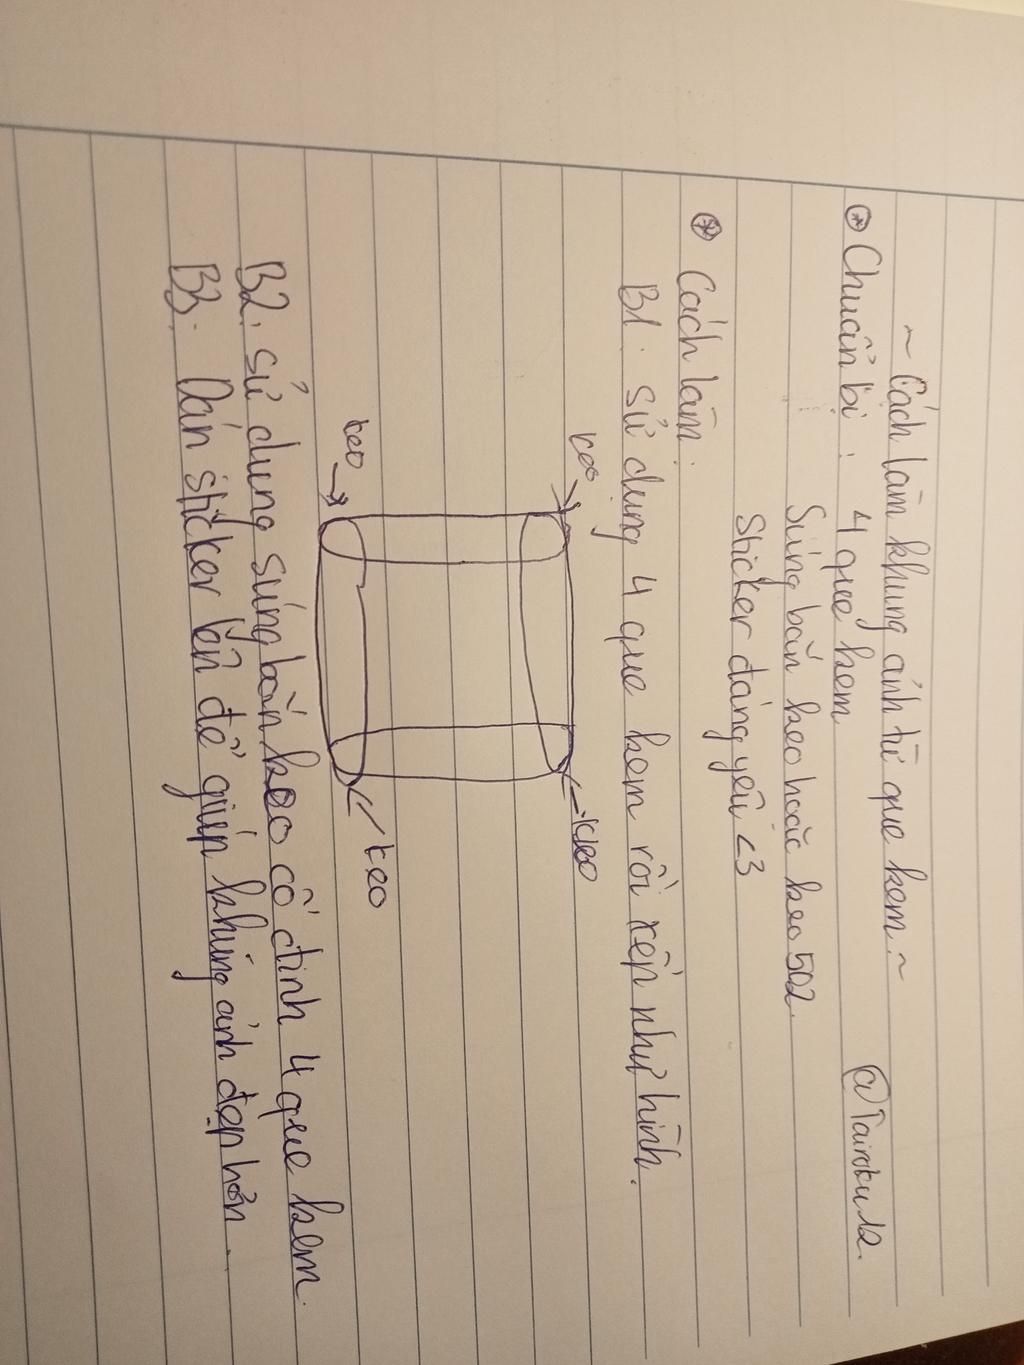 ~ Cách làm khung ảnh từ que kem ~
⊛ Chuẩn bị : 4 que kem
Súng bắn keo hoặc keo 502.
Sticker đáng yêu <3
⊛ Cách làm:
B1. sử dụng 4 que kem rồi xếp như hình.
keo
keo
keo
keo
B2. sử dụng súng bắn keo cố định 4 que kem.
B3. Dán sticker lên để giúp khung ảnh đẹp hơn.